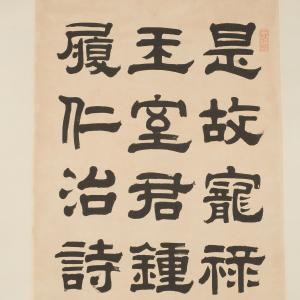 是故寵祿
王室君鍾
履仁治詩